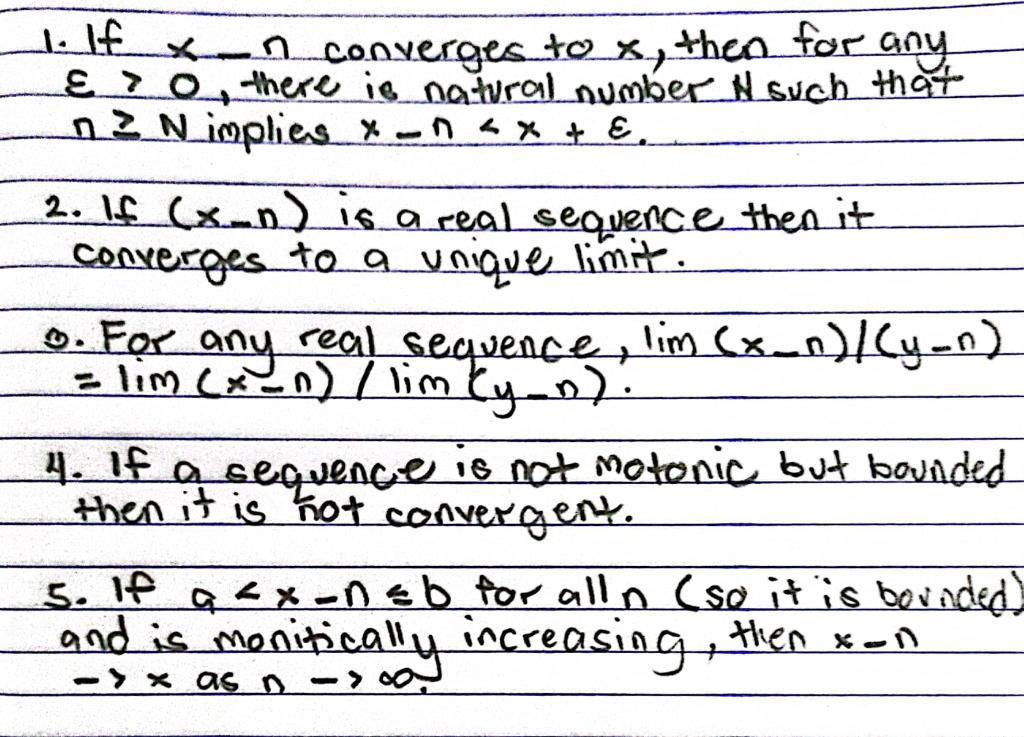 1. If x_n converges to x, then for any
ε > 0, there is natural number N such that
n ≥ N implies x_n < x + ε.
2. If (x_n) is a real sequence then it
converges to a unique limit.
3. For any real sequence, lim (x_n)/(y_n)
= lim (x_n) / lim (y_n).
4. If a sequence is not motonic but bounded
then it is not convergent.
5. If a < x_n ≤ b for all n (so it is bounded)
and is monitically increasing, then x_n
-> x as n -> ∞.